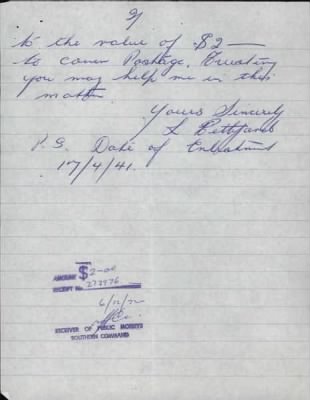 2/
to the value of $2 —
to cover Postage, Trusting
you may help me in this
matter.
Yours Sincerely
L Pettifand
P.S. Date of Enlistment
17/4/41.
AMOUNT $ 2-00
RECEIPT No. 273976
6/12/72
RECEIVER OF PUBLIC MONEYS
SOUTHERN COMMAND